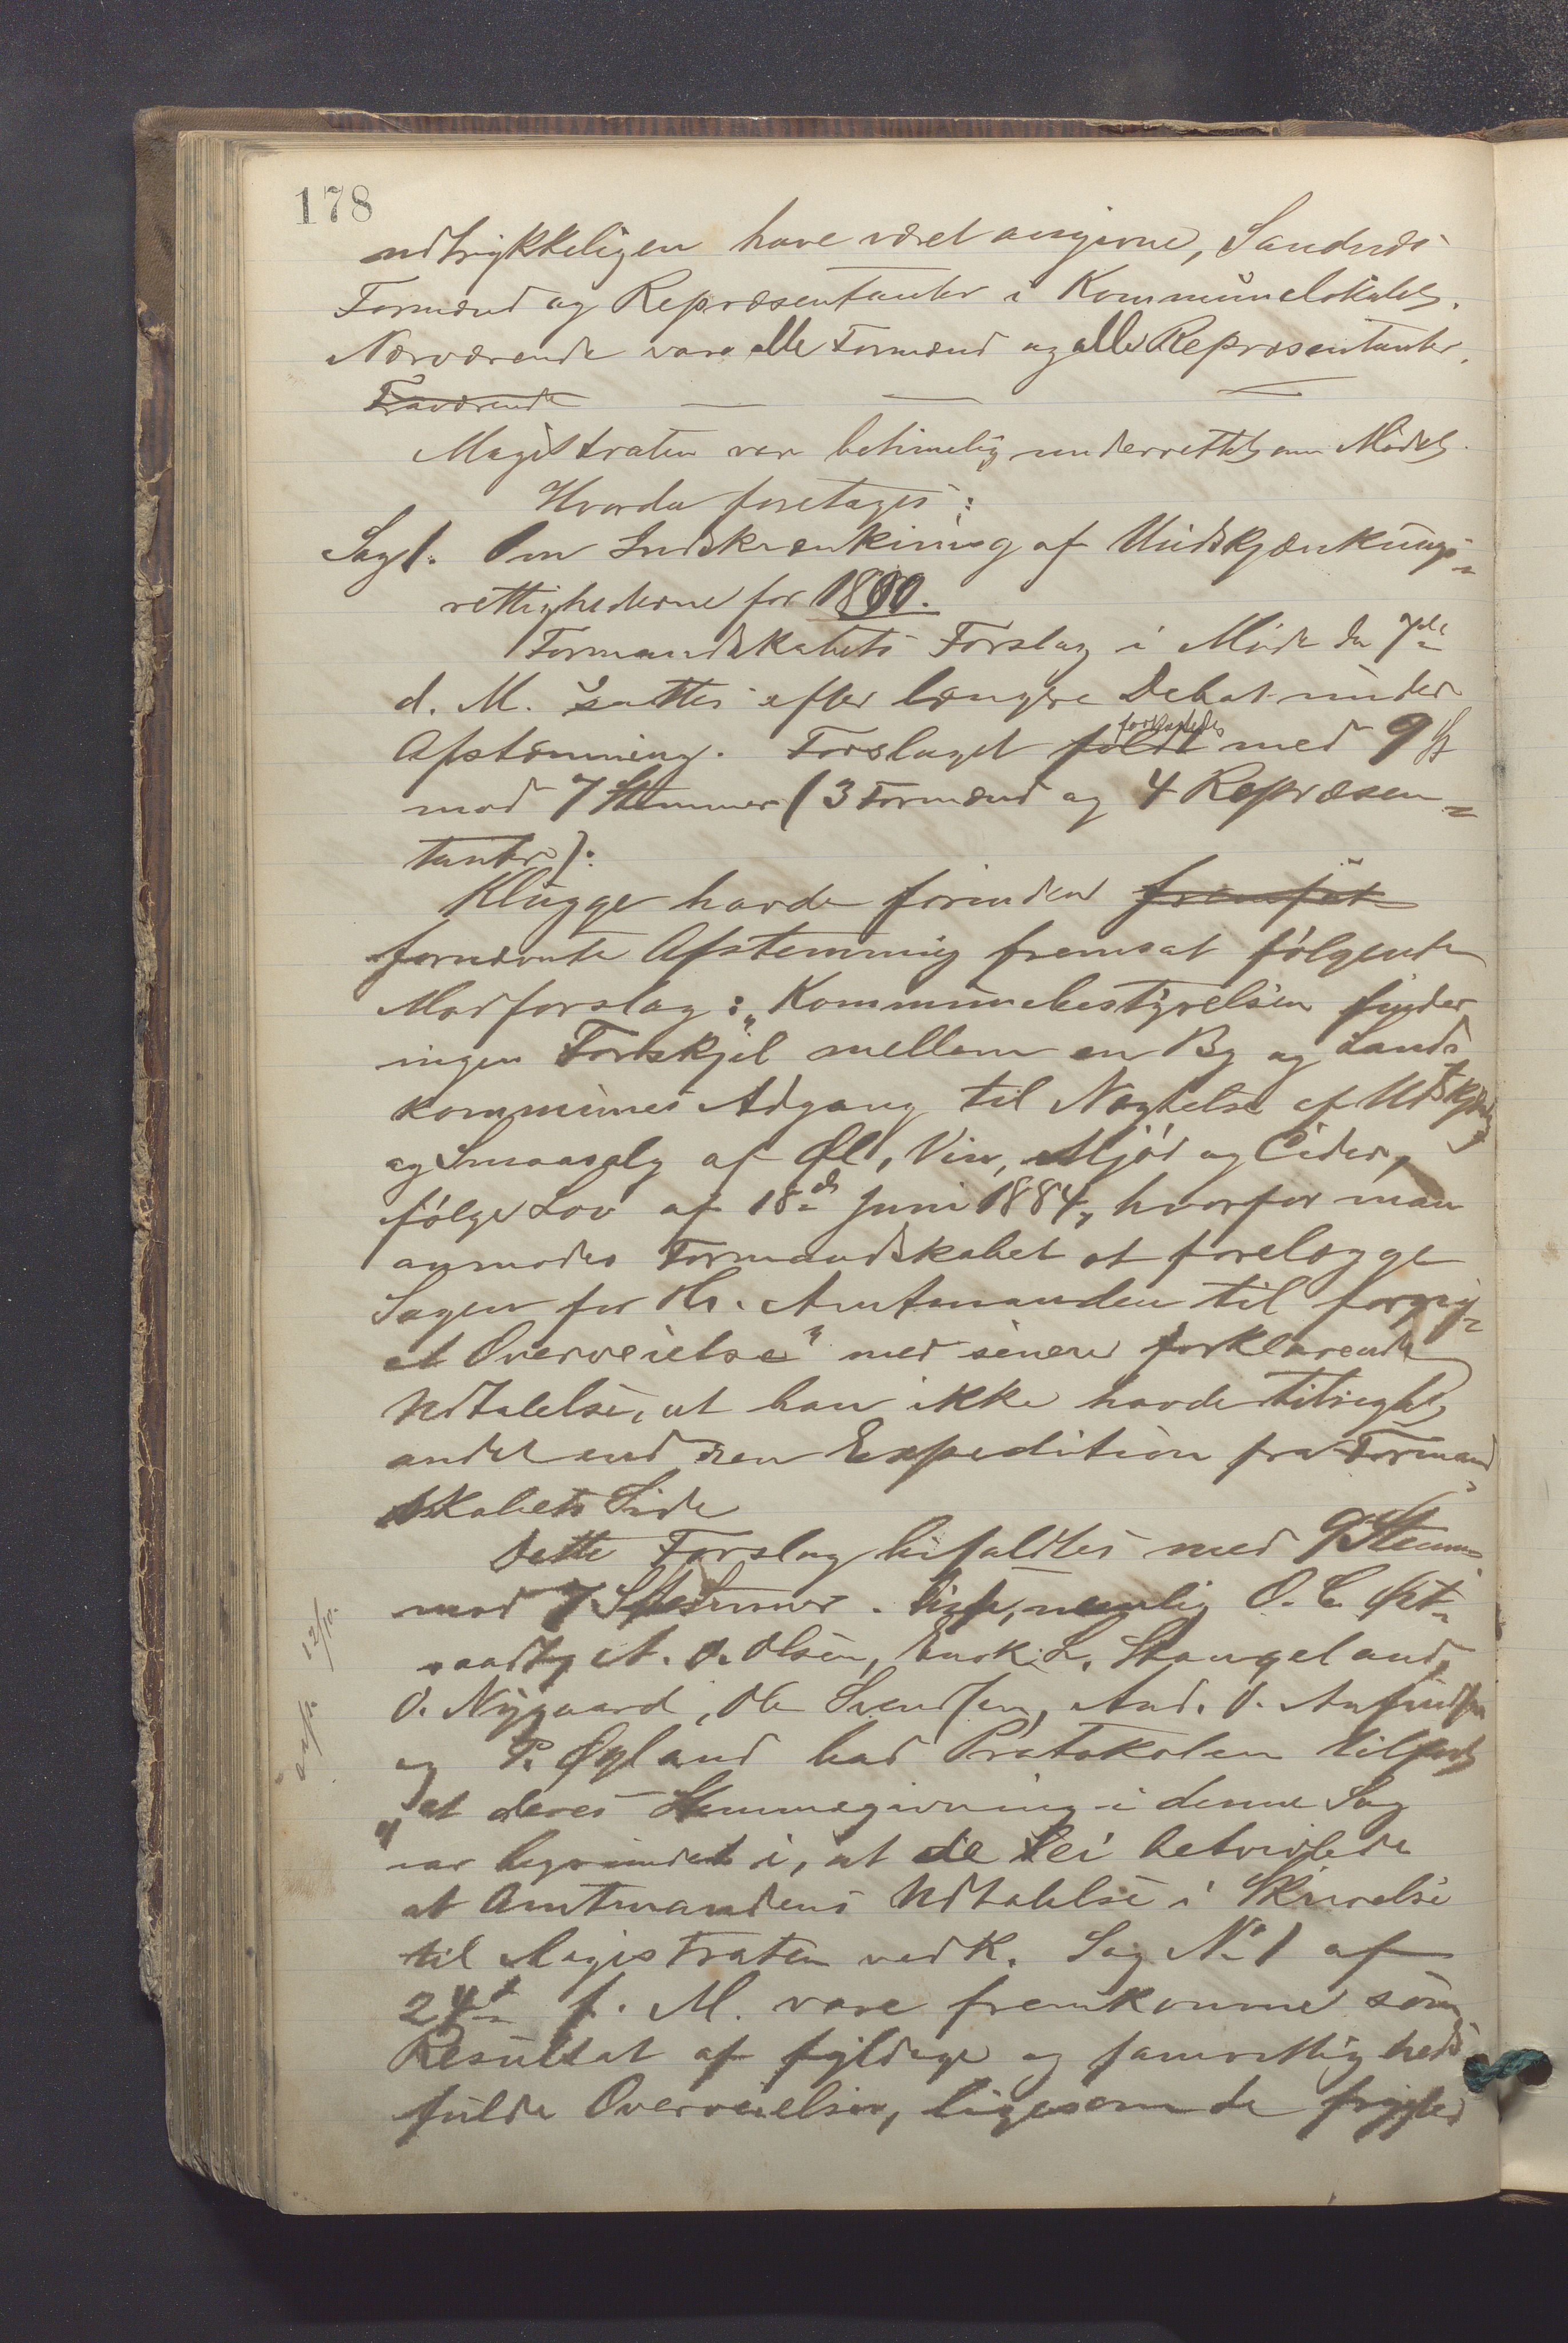 178
udtrykkeligen have været angivne, Sandnes
Formænd og Repræsentanter i Kommunelokalet.
Nærværende vare alle Formænd og alle Repræsentanter.
Fraværende — — —
Magistraten var betimelig underrettet om Mødet.
Hvorda foretages:
Sag 1. Om Indskrænkning af Udskjænknings-
rettighederne for
Formandskabets Forslag i Møde den 7de
d. M. sattes efter længere Debat under
Afstemning. Forslaget faldt forkastedes med 9
mod 7 Stemmer (3 Formænd og 4 Repræsen-
tanter).
Kluge havde forinden fremsat
fornævnte Afstemning fremsat følgende
Modforslag: „Kommunebestyrelsen finder
ingen Forskjel mellem en By og Lands
kommunes Adgang til Nægtelse af Udskjænkng
og Smaasalg af Øl, Vin, Mjød og Cider,
følge Lov af 18de Juni 1884, hvorfor man
anmoder Formandskabet at forelægge
Sagen for Hr. Amtmanden til forny-
et Overveielse" med senere forklarende
Udtalelse, at han ikke havde tilsigtet
andet end ren Expedition fra Formand
skabets Side
Dette Forslag bifaldtes med 9 Stemm.
mod 7 Stemmer. nemlig O. C. Øst-
raadt, A. O. Olsen, Enok L. Stangeland,
O. Nygaard, Ole Svendsen, And. O. Anfindsen
og P. Øgland bad Protokolen tilført
„at deres Stemmegivning i denne Sag
var begrundet i, at de ei betvivlede
at Amtmandens Udtalelse i Skrivelse
til Magistraten vedk. Sag No 1 af
24de f. M. vare fremkomne som
Resultat af fyldige og samvittigheds
fulde Overveielser, ligesom de frygted
12/10.